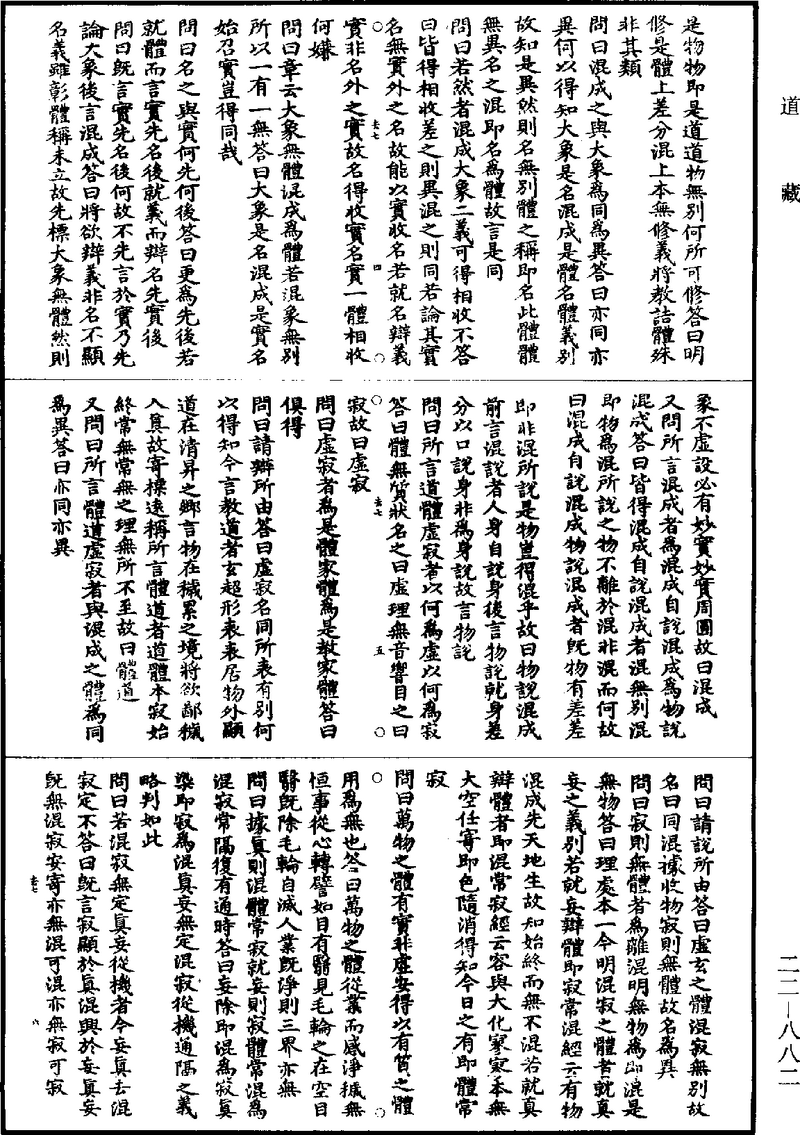 道藏
是物物即是道道物無別何所可修答曰明
修是體上差分混上本無修義將教詰體殊
非其類
問曰混成之與大象為同為異答曰亦同亦
異何以得知大象是名混成是體名體義別
故知是異然則名無別體之稱即名此體體
無異名之混即名為體故言是同
問曰若然者混成大象二義可得相收不答
曰皆得相收差之則異混之則同若論其實
名無實外之名故能以實收名若就名辯義
實非名外之實故名得收實名實一體相收
何嫌
問曰章云大象無體混成為體若混象無別
所以一有一無答曰大象是名混成是實名
始召實豈得同哉
問曰名之與實何先何後答曰更為先後若
就體而言實先名後就義而辯名先實後
問曰既言實先名後何故不先言於實乃先
論大象後言混成答曰將欲辯義非名不顯
名義雖彰體稱未立故先標大象無體然則
象不虛設必有妙實妙實周圓故曰混成
又問所言混成者為混成自說混成為物說
混成答曰皆得混成自說混成者混無別混
即物為混所說之物不離於混非混而何故
曰混成自說混成物說混成者既物有差差
即非混所說是物豈得混乎故曰物說混成
前言混說者人身自說身後言物說就身差
分以口說身非為身說故言物說
問曰所言道體虛寂者以何為虛以何為寂
答曰體無質狀名之曰虛理無音響目之曰
寂故曰虛寂
問曰虛寂者為是體家體為是教家體答曰
俱得
問曰請辯所由答曰虛寂名同所表有別何
以得知今言教道者玄超形表表居物外顯
道在清昇之鄉言物在穢累之境將欲鄙穢
入真故寄標遠稱所言體道者道體本寂始
終常無常無之理無所不至故曰體道
又問曰所言體道虛寂者與混成之體為同
為異答曰亦同亦異
問曰請說所由答曰虛玄之體混寂無別故
名曰同混據收物寂則無體故名為異
問曰寂則無體者為離混明無物為即混是
無物答曰理處本一今明混寂之體者就真
妄之義別若就妄辯體即寂常混經云有物
混成先天地生故知始終而無不混若就真
辯體者即混常寂經云容與大化寥寥本無
大空任寄即色隨消得知今日之有即體常
寂
問曰萬物之體有實非虛安得以有質之體
用為無也答曰萬物之體從業而感淨穢無
恒事從心轉譬如目有翳見毛輪之在空目
翳既除毛輪自滅人業既淨則三界亦無
問曰據真則混體常寂就妄則寂體常混為
混寂常隔復有通時答曰妄除即混為寂真
染即寂為混真妄無定混寂從機通隔之義
略判如此
問曰若混寂無定真妄從機者今妄真去混
寂定不答曰既言寂顯於真混興於妄真妄
既無混寂安寄亦無混可混亦無寂可寂
二二—八八二